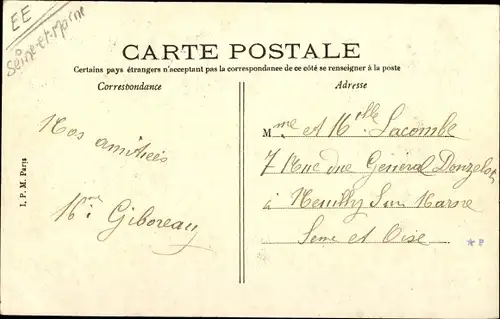 EE
Seine-et-Marne
CARTE POSTALE
Certains pays étrangers n'acceptant pas la correspondance de ce côté se renseigner à la poste
Correspondance
Adresse
Nos amitiés
Mme Giboreau
Mme et Mlle Lacombe
7 Rue du Général Donzelot
à Neuilly Sur Marne
Seine et Oise
I. P. M. Parys
*P